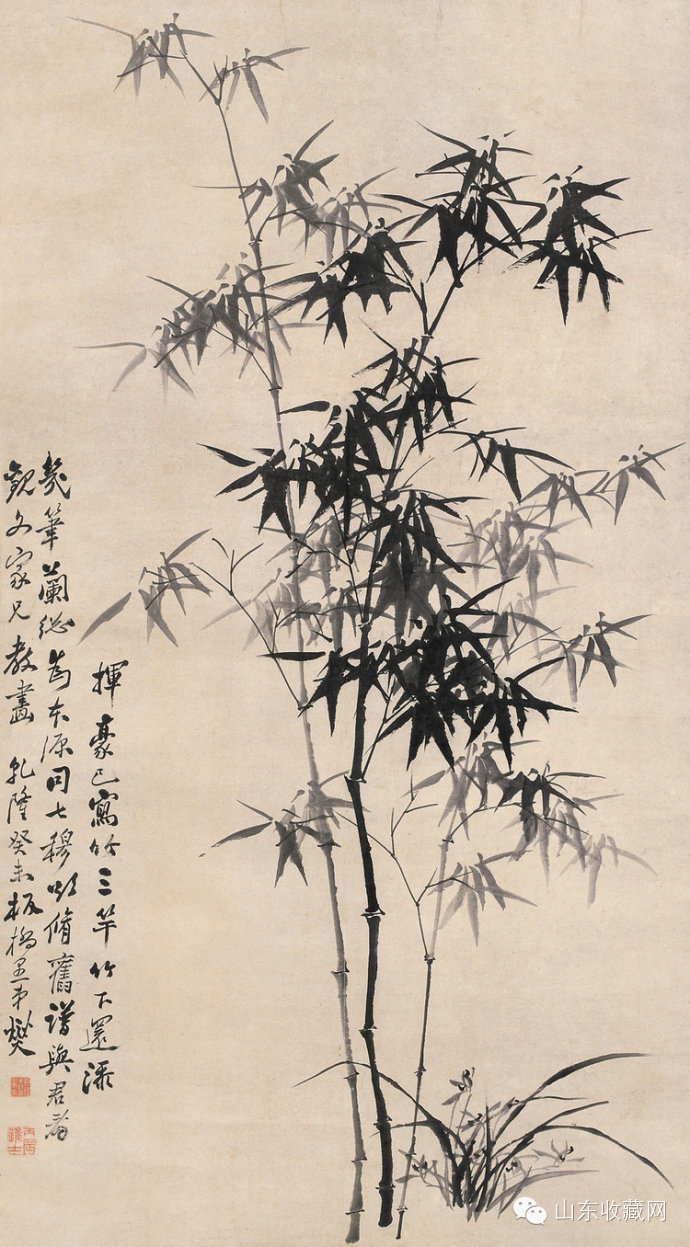 揮豪已寫竹三竿竹下還添
幾筆蘭總為本源同七穆欲脩舊譜與君看
觀文家兄教畫 乾隆癸未板橋愚弟燮
丙辰進士
山东收藏网